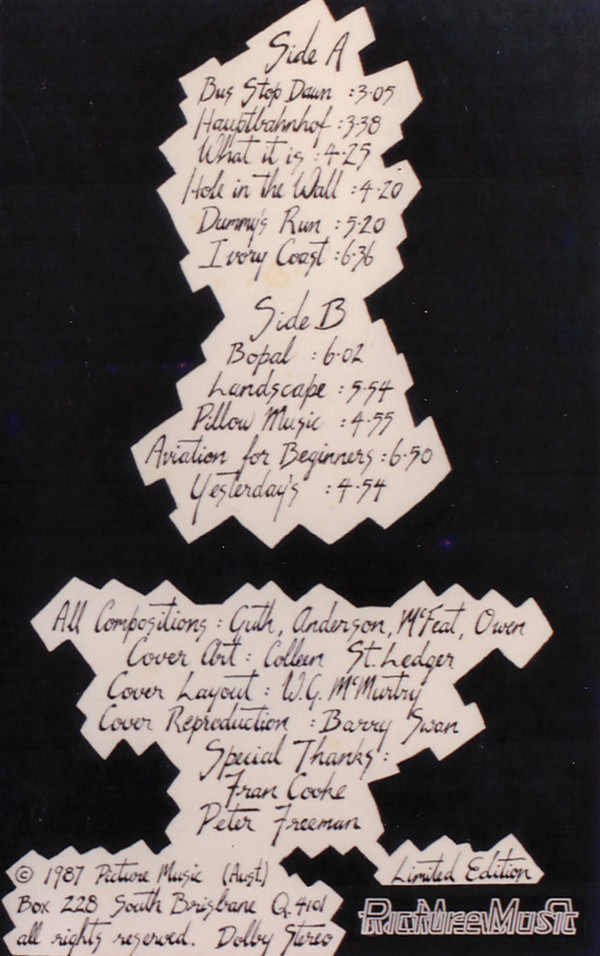 Side A
Bus Stop Dawn :3·05
Hauptbahnhof :3·38
What it is :4·25
Hole in the Wall :4·20
Dummy's Run :5·20
Ivory Coast :6·36
Side B
Bopal :6·02
Landscape :5·54
Pillow Music :4·55
Aviation for Beginners :6·50
Yesterday's :4·54
All Compositions : Guth, Anderson, McFeat, Owen
Cover Art : Colleen St.Ledger
Cover Layout : W.G. McMurtry
Cover Reproduction : Barry Swan
Special Thanks :
Fran Cooke
Peter Freeman
© 1987 Picture Music (Aust)
Box 228 South Brisbane Q.4101
all rights reserved. Dolby Stereo
Limited Edition
Picture Music